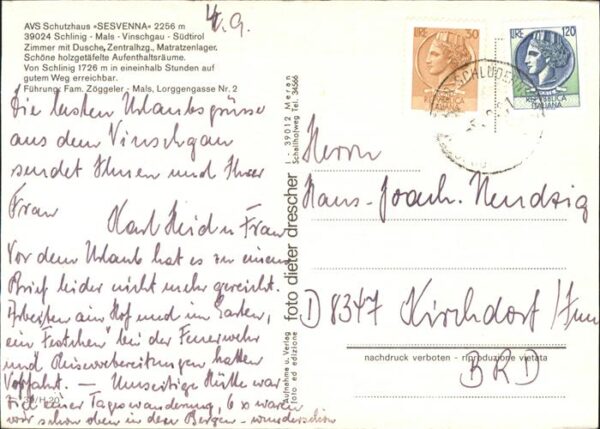 4.9.
AVS Schutzhaus »SESVENNA« 2256 m
39024 Schlinig · Mals · Vinschgau · Südtirol
Zimmer mit Dusche, Zentralhzg., Matratzenlager.
Schöne holzgetäfelte Aufenthaltsräume.
Von Schlinig 1726 m in eineinhalb Stunden auf
gutem Weg erreichbar.
Führung: Fam. Zöggeler · Mals, Lorggengasse Nr. 2
Die besten Urlaubsgrüsse
aus dem Vinschgau
sendet Ihnen und Ihrer
Frau
Karl Heid u Frau
Vor dem Urlaub hat es zu einem
Brief leider nicht mehr gereicht.
Arbeiten am Hof und im Garten,
ein Festchen" bei der Feuerwehr
und Reisevorbereitungen hatten
Vorfahrt. — Umseitige Hütte war
Ziel einer Tageswanderung, 6 x waren
wir schon oben in den Bergen - wunderschön
foto dieter drescher
I - 39012 Meran
Schallhofweg Tel. 34366
Aufnahme u. Verlag
foto ed edizione
LIRE 30
REPUBBLICA
ITALIANA
LIRE 120
REPUBBLICA
ITALIANA
Herrn
Hans-Joach. Nendzig
D 8347 Kirchdorf/Inn
nachdruck verboten - riproduzione vietata
BRD